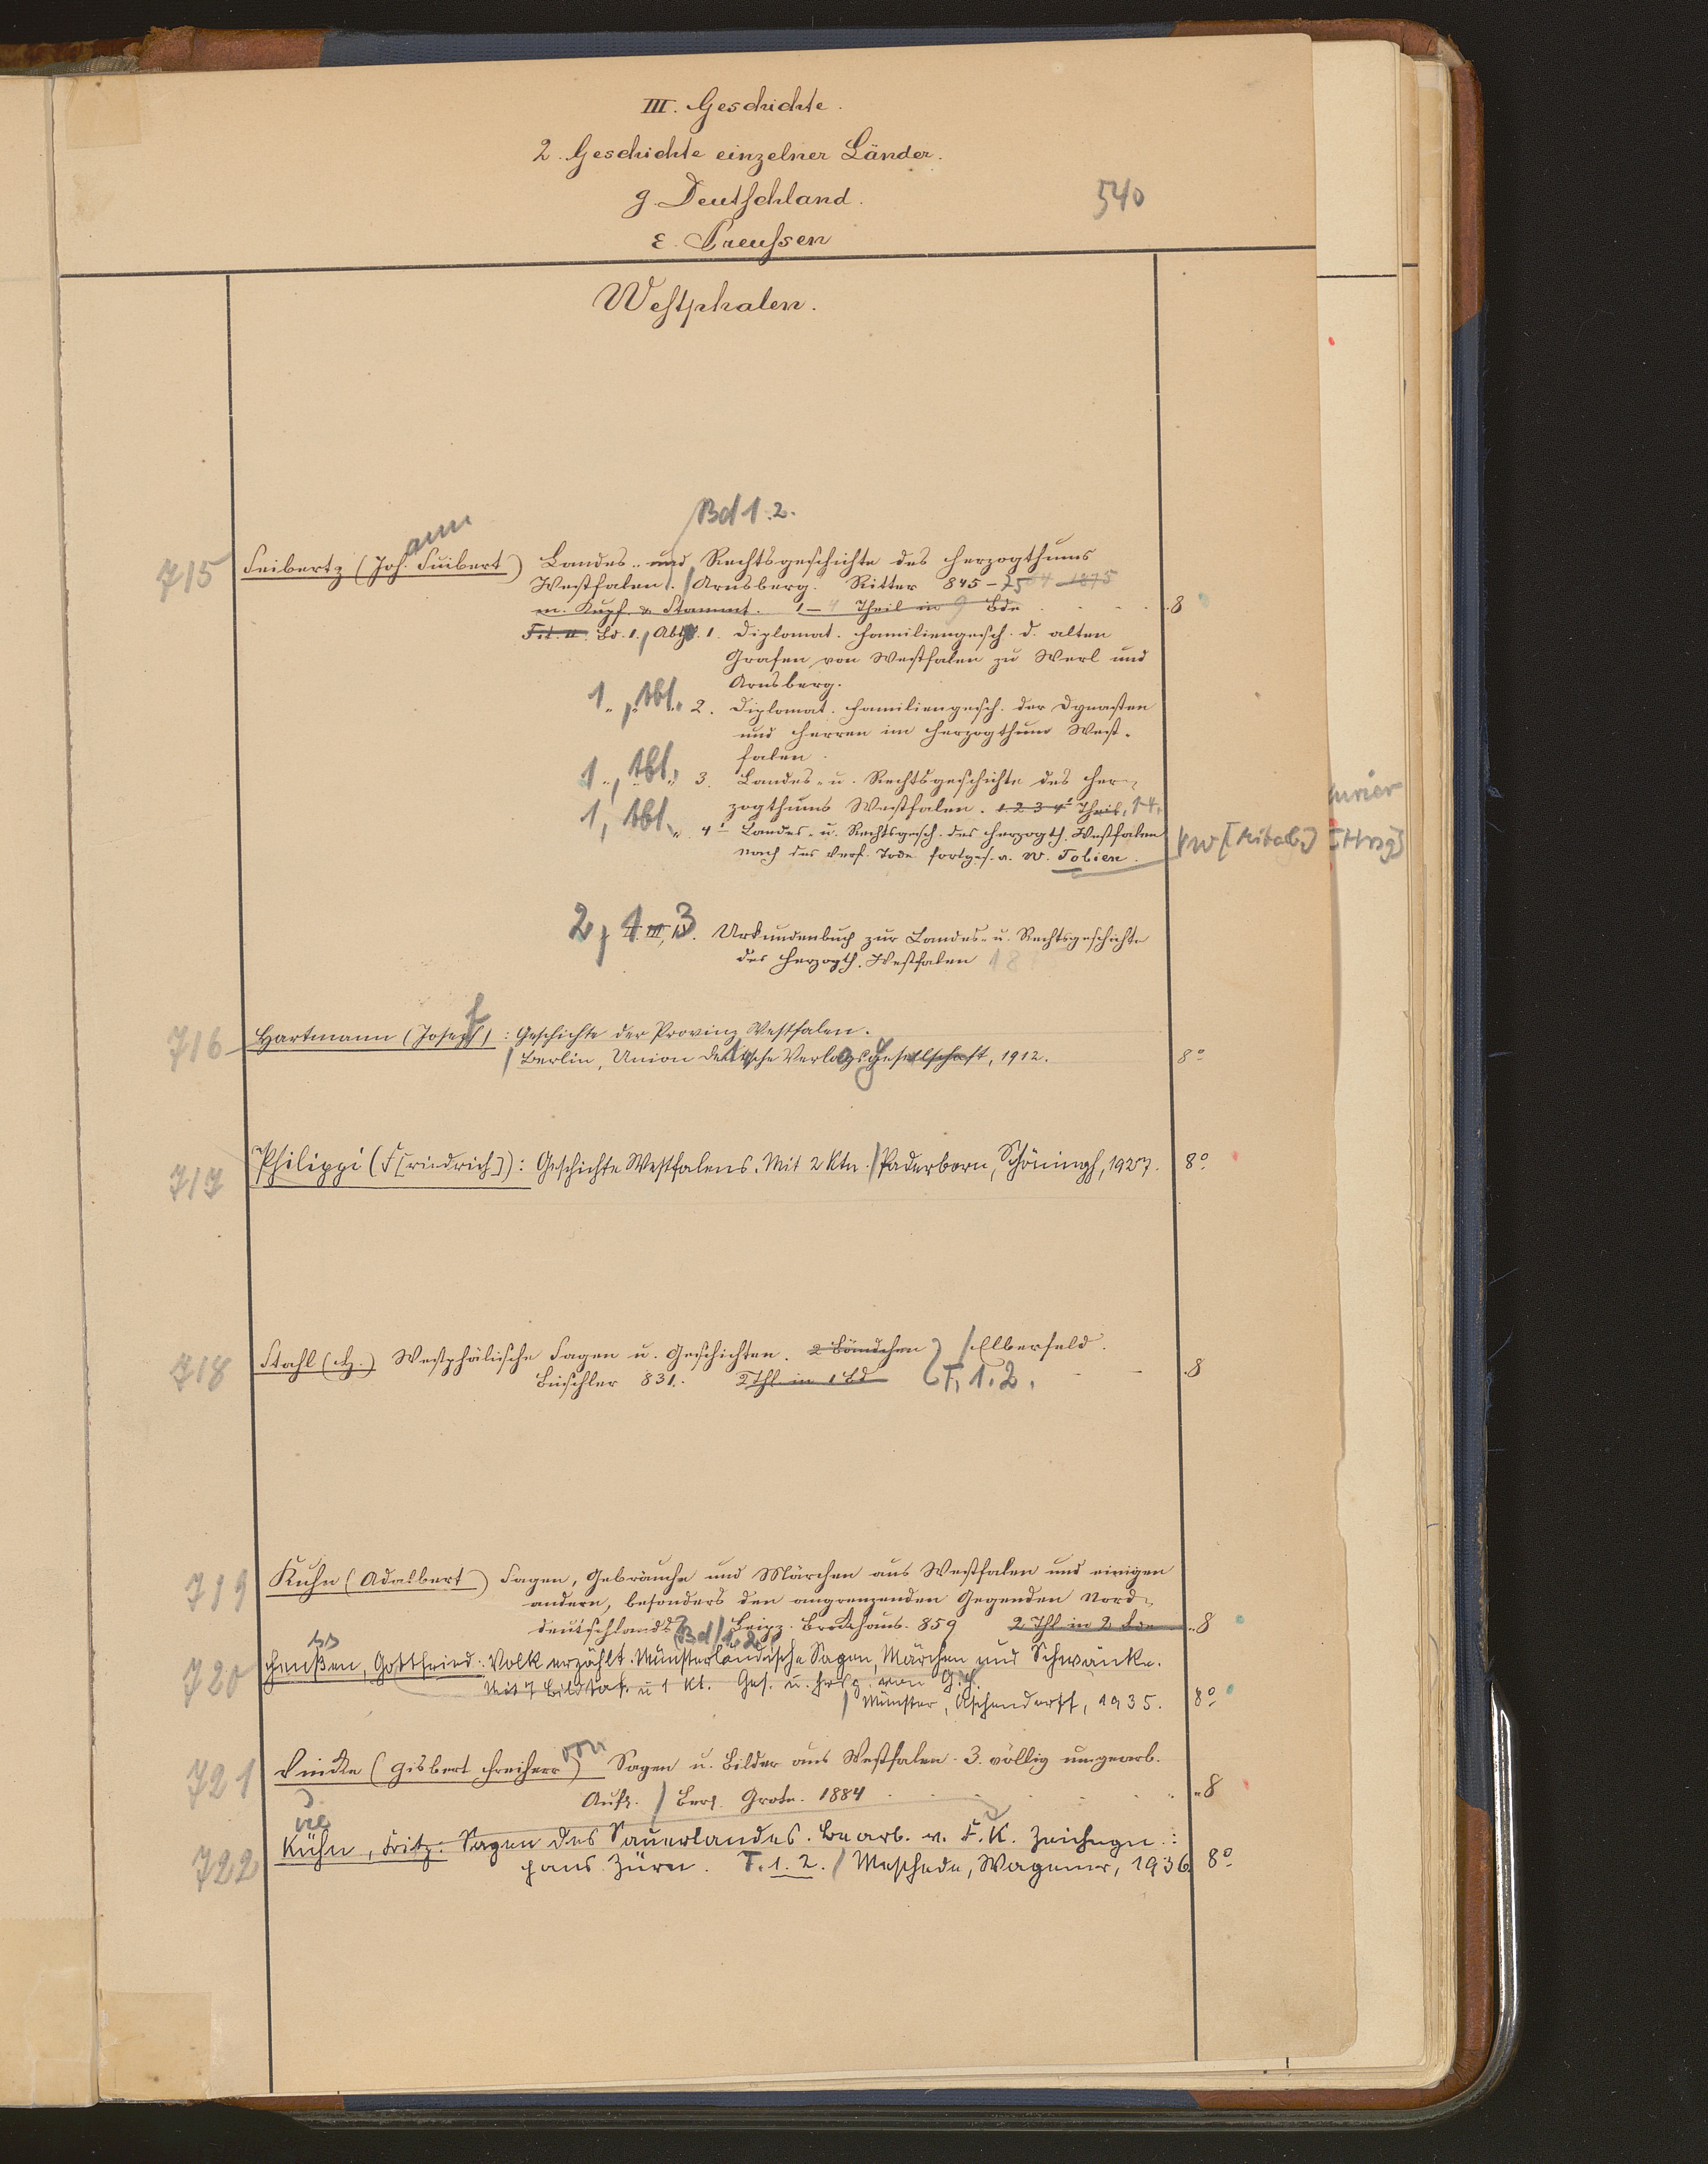 III. Geschichte.
2. Geschichte einzelner Länder.
g. Deutschland.
540
ε. Preussen
Westphalen.
Bd 1.2.
ann
715 Seibertz (Joh. Suibert) Landes- und Rechtsgeschichte des Herzogthums
Westfalen. / Arnsberg. Ritter 845-75 1875
m. Kupf. u. Stammt. 1-4 Theil in 9 Bde 8
Tit. u. Bd. 1., Abth. 1. Diplomat. Familiengesch. d. alten
Grafen von Westfalen zu Werl und
Arnsberg.
1, Abt. 2. Diplomat. Familiengesch. der Dynasten
und Herren im Herzogthum West-
falen.
1, Abt. 3. Landes- u. Rechtsgeschichte des Her-
zogthums Westfalen. 1 2 3 4r Theil, 1-4.
1, Abt. 4r Landes- u. Rechtsgesch. des Herzogth. Westfalen
nach des Verf. Tode fortges. v. W. Tobien.
VW [Mitarb.] [Hrsg]
2, 1-3 II. III, IV. Urkundenbuch zur Landes- u. Rechtsgeschichte
des Herzogth. Westfalen 18
f
716 Hartmann (Joseph): Geschichte der Provinz Westfalen.
/ Berlin, Union Deutsche Verlagsgesellschaft, 1912. 8°
717 Philippi (F[riedrich]): Geschichte Westfalens. Mit 2 Ktn. / Paderborn, Schöningh, 1927. 8°
718 Stahl (H.) Westphälische Sagen u. Geschichten. 2 Bändchen / Elberfeld.
Büschler 831. 2 Thl. in 1 Bd T. 1.2. 8
719 Kuhn (Adalbert) Sagen, Gebräuche und Märchen aus Westfalen und einigen
andern, besonders den angrenzenden Gegenden Nord-
deutschlands. Bd 1.2. / Leipz. Brockhaus. 859 2 Thl in 2 Bde 8
ss
720 Henßen, Gottfried: Volk erzählt. Münsterländische Sagen, Märchen und Schwänke.
Mit 7 Bildtaf. u 1 Kt. Ges. u. hrsg. von G. H.
/ Münster, Aschendorff, 1935. 8°
von
721 Vincke (Gisbert Freiherr) Sagen u. Bilder aus Westfalen. 3. völlig umgearb.
Aufl. / Berl. Grote. 1884 8
ue
722 Kühn, Fritz: Sagen des Sauerlandes. Bearb. v. F. K. Zeichngn.:
Hans Zürn. T. 1.2. / Meschede, Wagener, 1936 8°